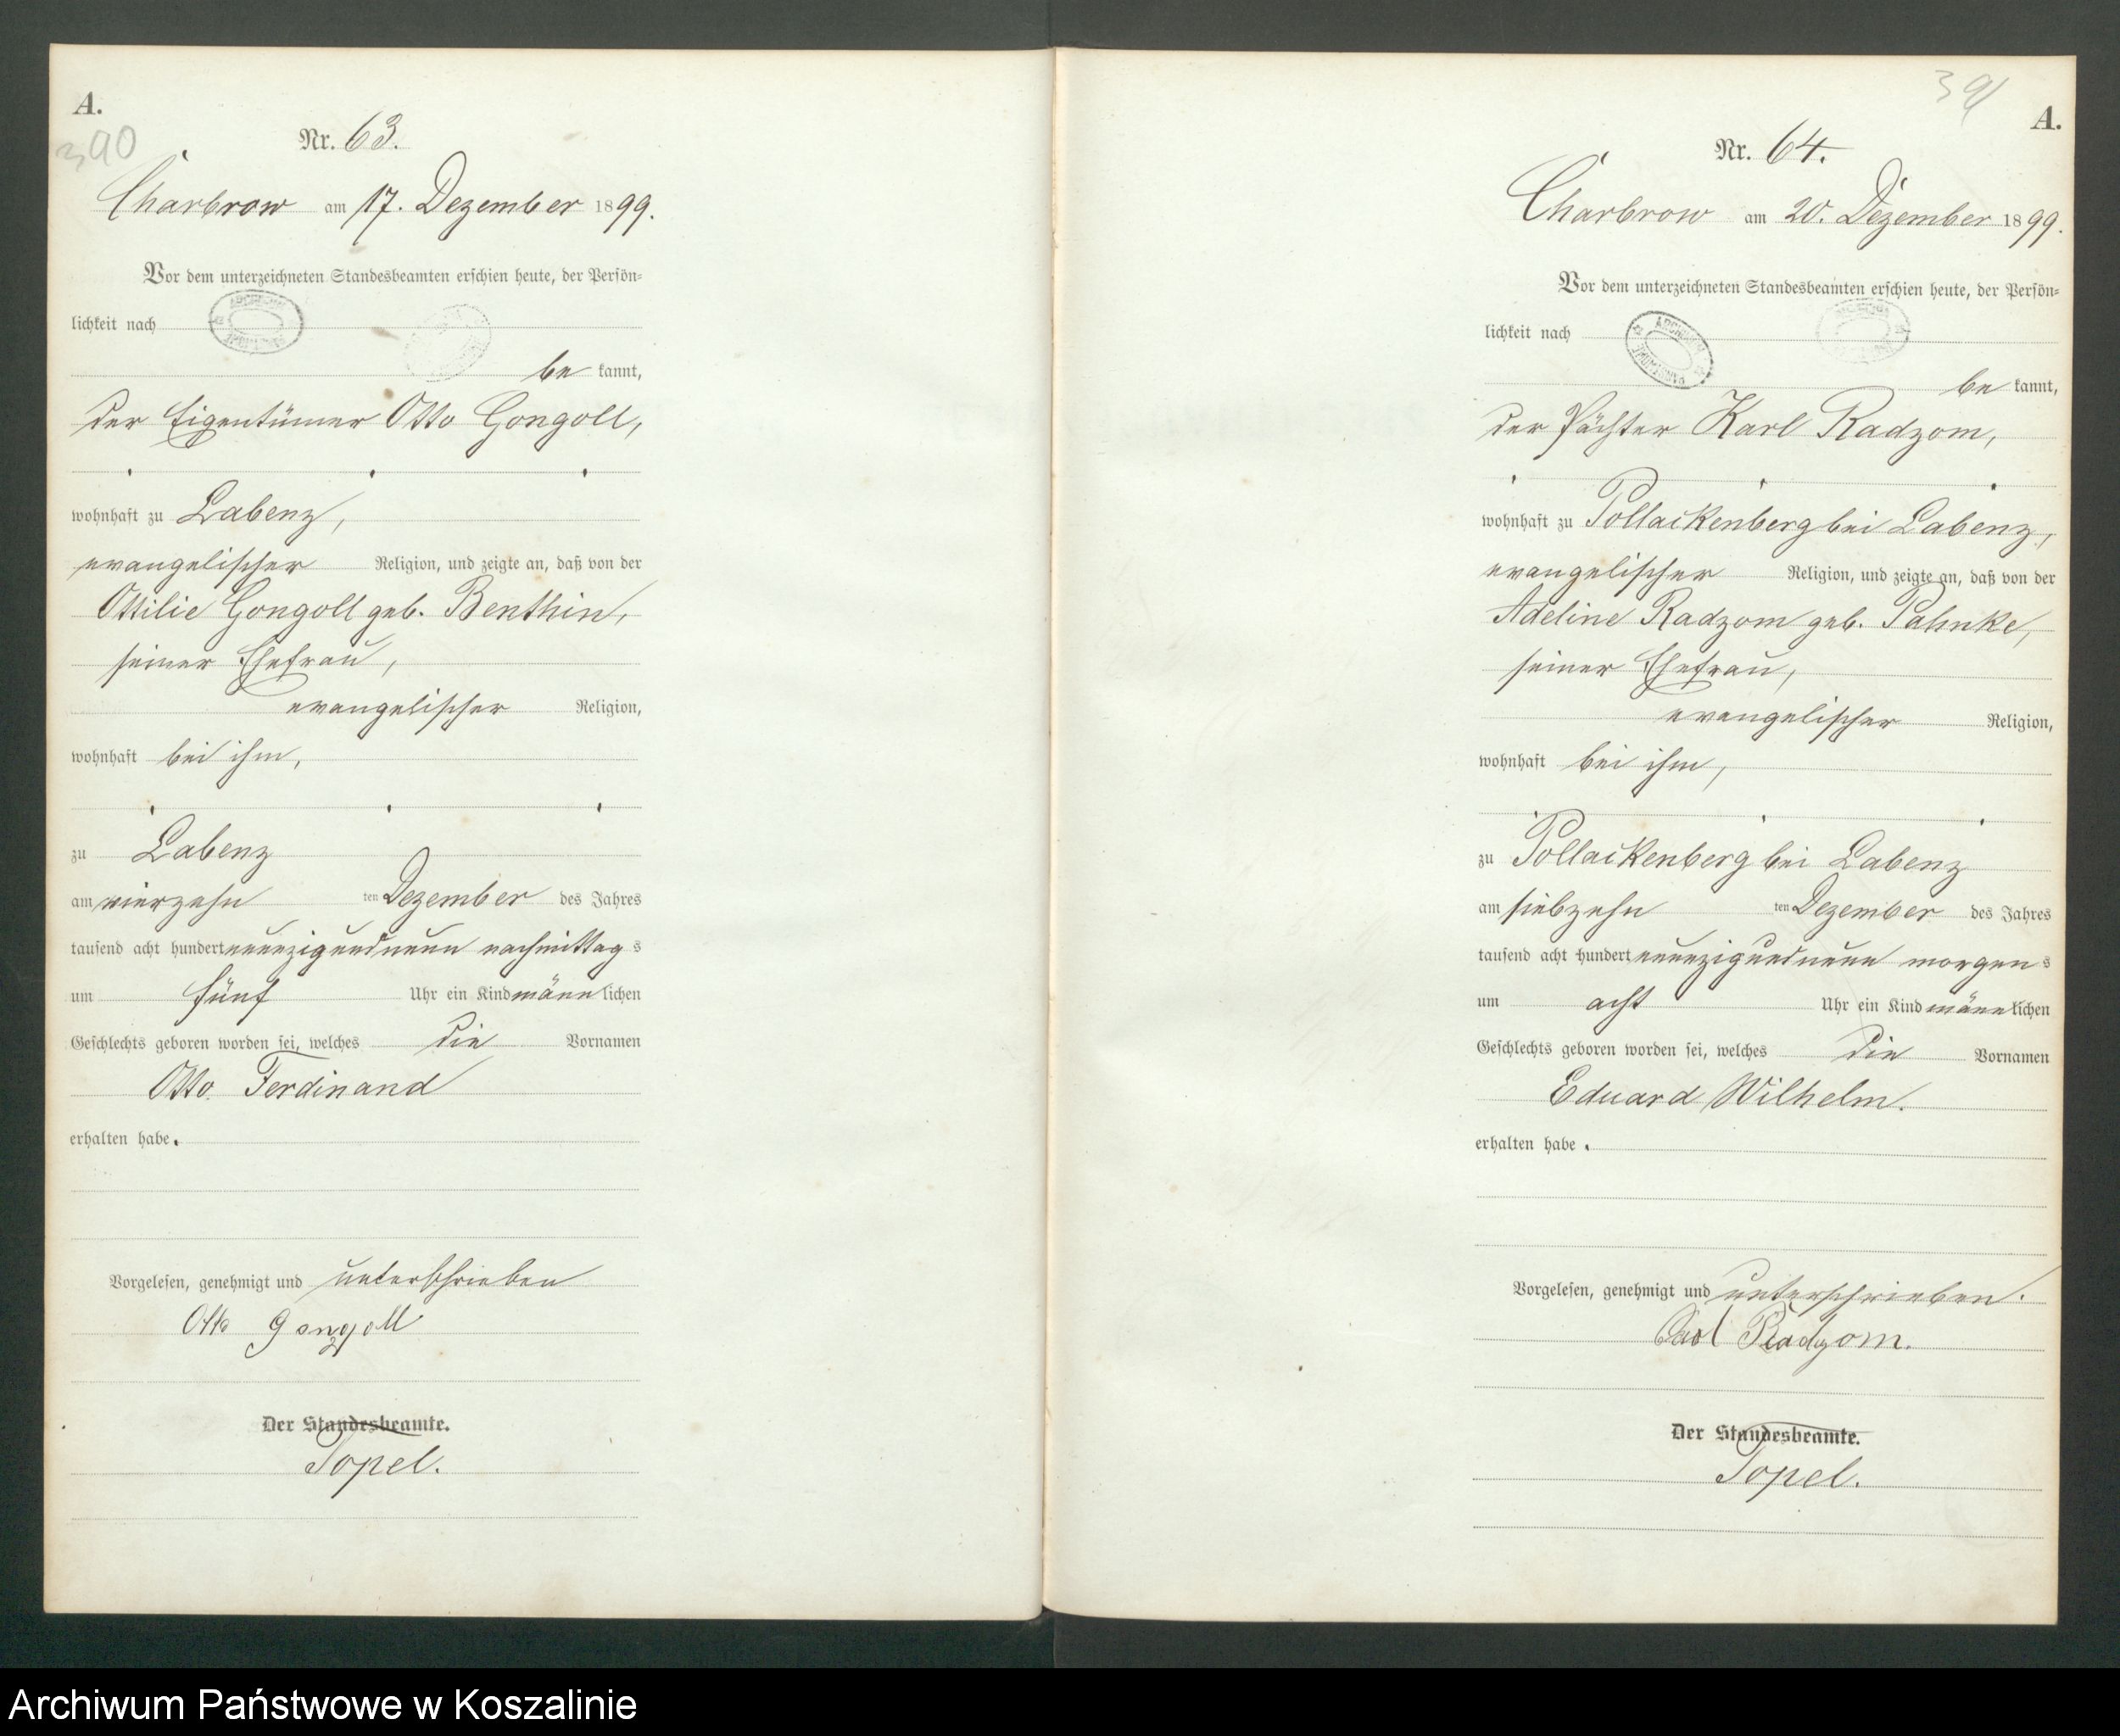 A.
390
Nr. 63.
Charbrow am 17. Dezember 1899.
Vor dem unterzeichneten Standesbeamten erschien heute, der Persön-
lichkeit nach
be kannt,
der Eigentümer Otto Gongoll,
wohnhaft zu Labenz,
evangelischer Religion, und zeigte an, daß von der
Ottilie Gongoll geb. Benthin,
seiner Ehefrau,
evangelischer Religion,
wohnhaft bei ihm,
zu Labenz
am vierzehn ten Dezember des Jahres
tausend acht hundert neunzigundneun nachmittag s
um fünf Uhr ein Kind männ lichen
Geschlechts geboren worden sei, welches die Vornamen
Otto Ferdinand
erhalten habe.
Vorgelesen, genehmigt und unterschrieben
Otto Gongoll
Der Standesbeamte.
Topel.
391
A.
Nr. 64.
Charbrow am 20. Dezember 1899.
Vor dem unterzeichneten Standesbeamten erschien heute, der Persön-
lichkeit nach
ARCHIWUM
be kannt,
der Pächter Karl Radzom,
wohnhaft zu Pollackenberg bei Labenz,
evangelischer Religion, und zeigte an, daß von der
Adeline Radzom geb. Pahnke,
seiner Ehefrau,
evangelischer Religion,
wohnhaft bei ihm,
zu Pollackenberg bei Labenz
am siebzehn ten Dezember des Jahres
tausend acht hundert neunzigundneun morgen s
um acht Uhr ein Kind männ lichen
Geschlechts geboren worden sei, welches die Vornamen
Eduard Wilhelm.
erhalten habe.
Vorgelesen, genehmigt und unterschrieben.
Carl Radzom.
Der Standesbeamte.
Topel.
Archiwum Państwowe w Koszalinie